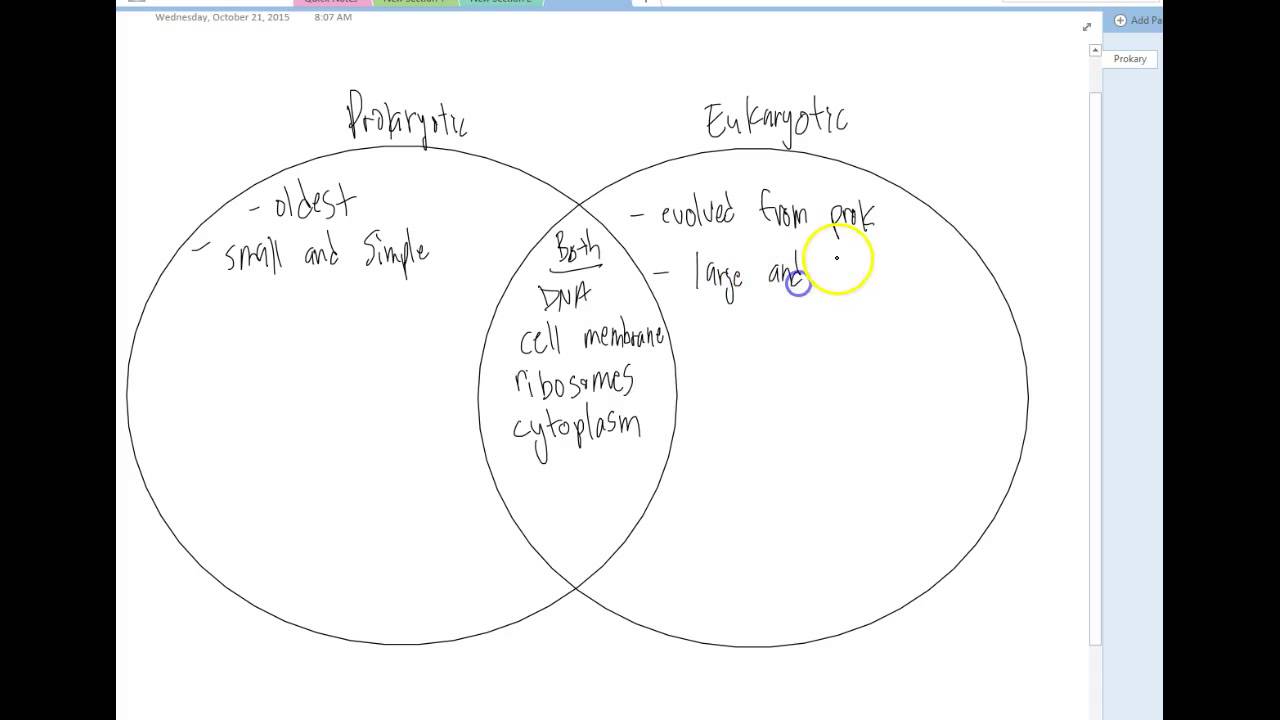 Quick Notes New Section 1 New Section 2
Wednesday, October 21, 2015 8:07 AM
Add Pa
Prokary
Prokaryotic
Eukaryotic
- oldest
- small and simple
Both
DNA
cell membrane
ribosomes
cytoplasm
- evolved from prok
- large and